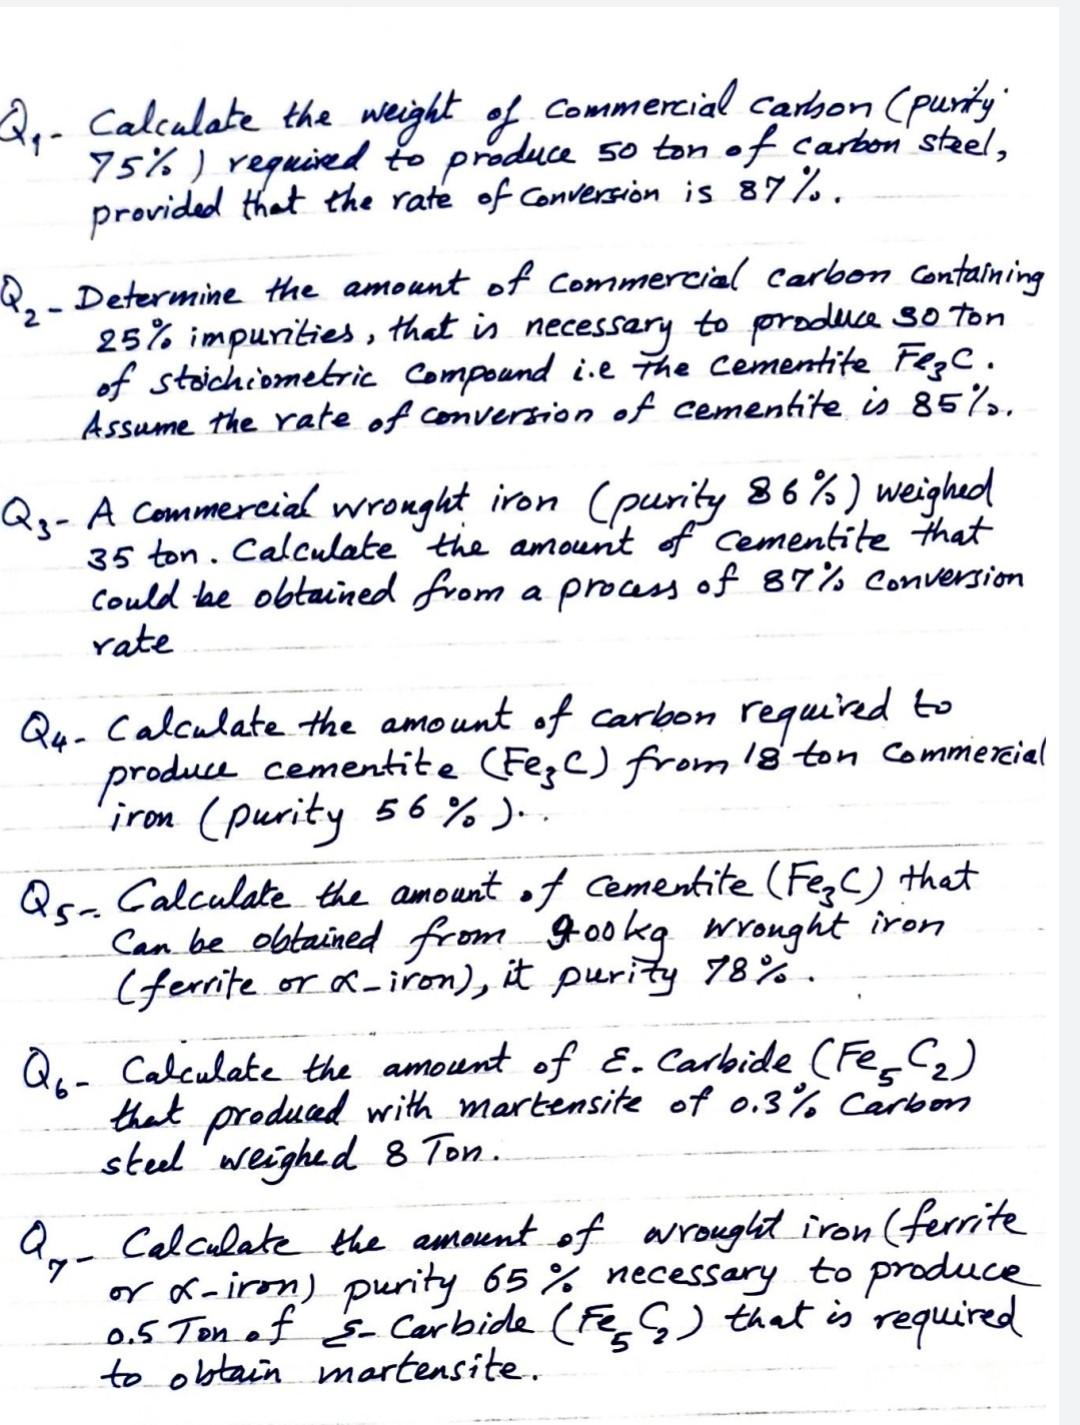 Q1- Calculate the weight of Commercial carbon (purity
75%) required to produce 50 ton of carbon steel,
provided that the rate of Conversion is 87%.
Q2- Determine the amount of Commercial carbon Containing
25% impurities, that is necessary to produce 30 Ton
of stoichiometric Compound i.e the Cementite Fe3C.
Assume the rate of conversion of cementite is 85%.
Q3- A Commercial wrought iron (purity 86%) weighed
35 ton. Calculate the amount of Cementite that
Could be obtained from a process of 87% Conversion
rate
Q4- Calculate the amount of carbon required to
produce cementite (Fe3C) from 18 ton Commercial
iron (purity 56%)..
Q5- Calculate the amount of Cementite (Fe3C) that
Can be obtained from 900kg wrought iron
(ferrite or α-iron), it purity 78%.
Q6- Calculate the amount of ε-Carbide (Fe5C2)
that produced with martensite of 0.3% Carbon
steel weighed 8 Ton.
Q7- Calculate the amount of wrought iron (ferrite
or α-iron) purity 65% necessary to produce
0.5 Ton of ε-Carbide (Fe5C2) that is required
to obtain martensite.